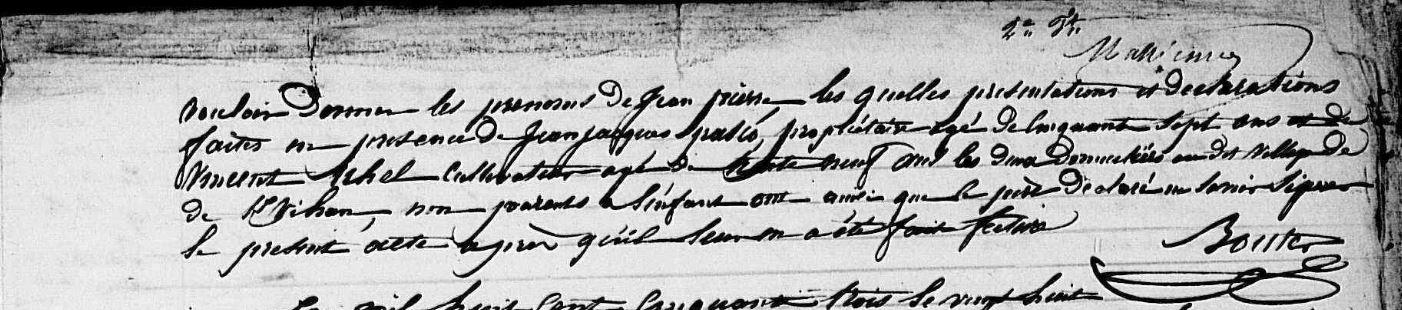 vouloir donner les prenoms de Jean pierre les quelles presentations et declarations
faites en presence de Jean jacques propriétaire agé de Cinquante Sept ans et de
Vincent cultivateur agé de trente neuf ans les deux domiciliés au dit village de
de non parents a l'enfant ont ainsi que le père declaré ne savoir signer
le present acte après qu'il leur en a été fait lecture
mil huit Cent Cinquante trois le vingt huit